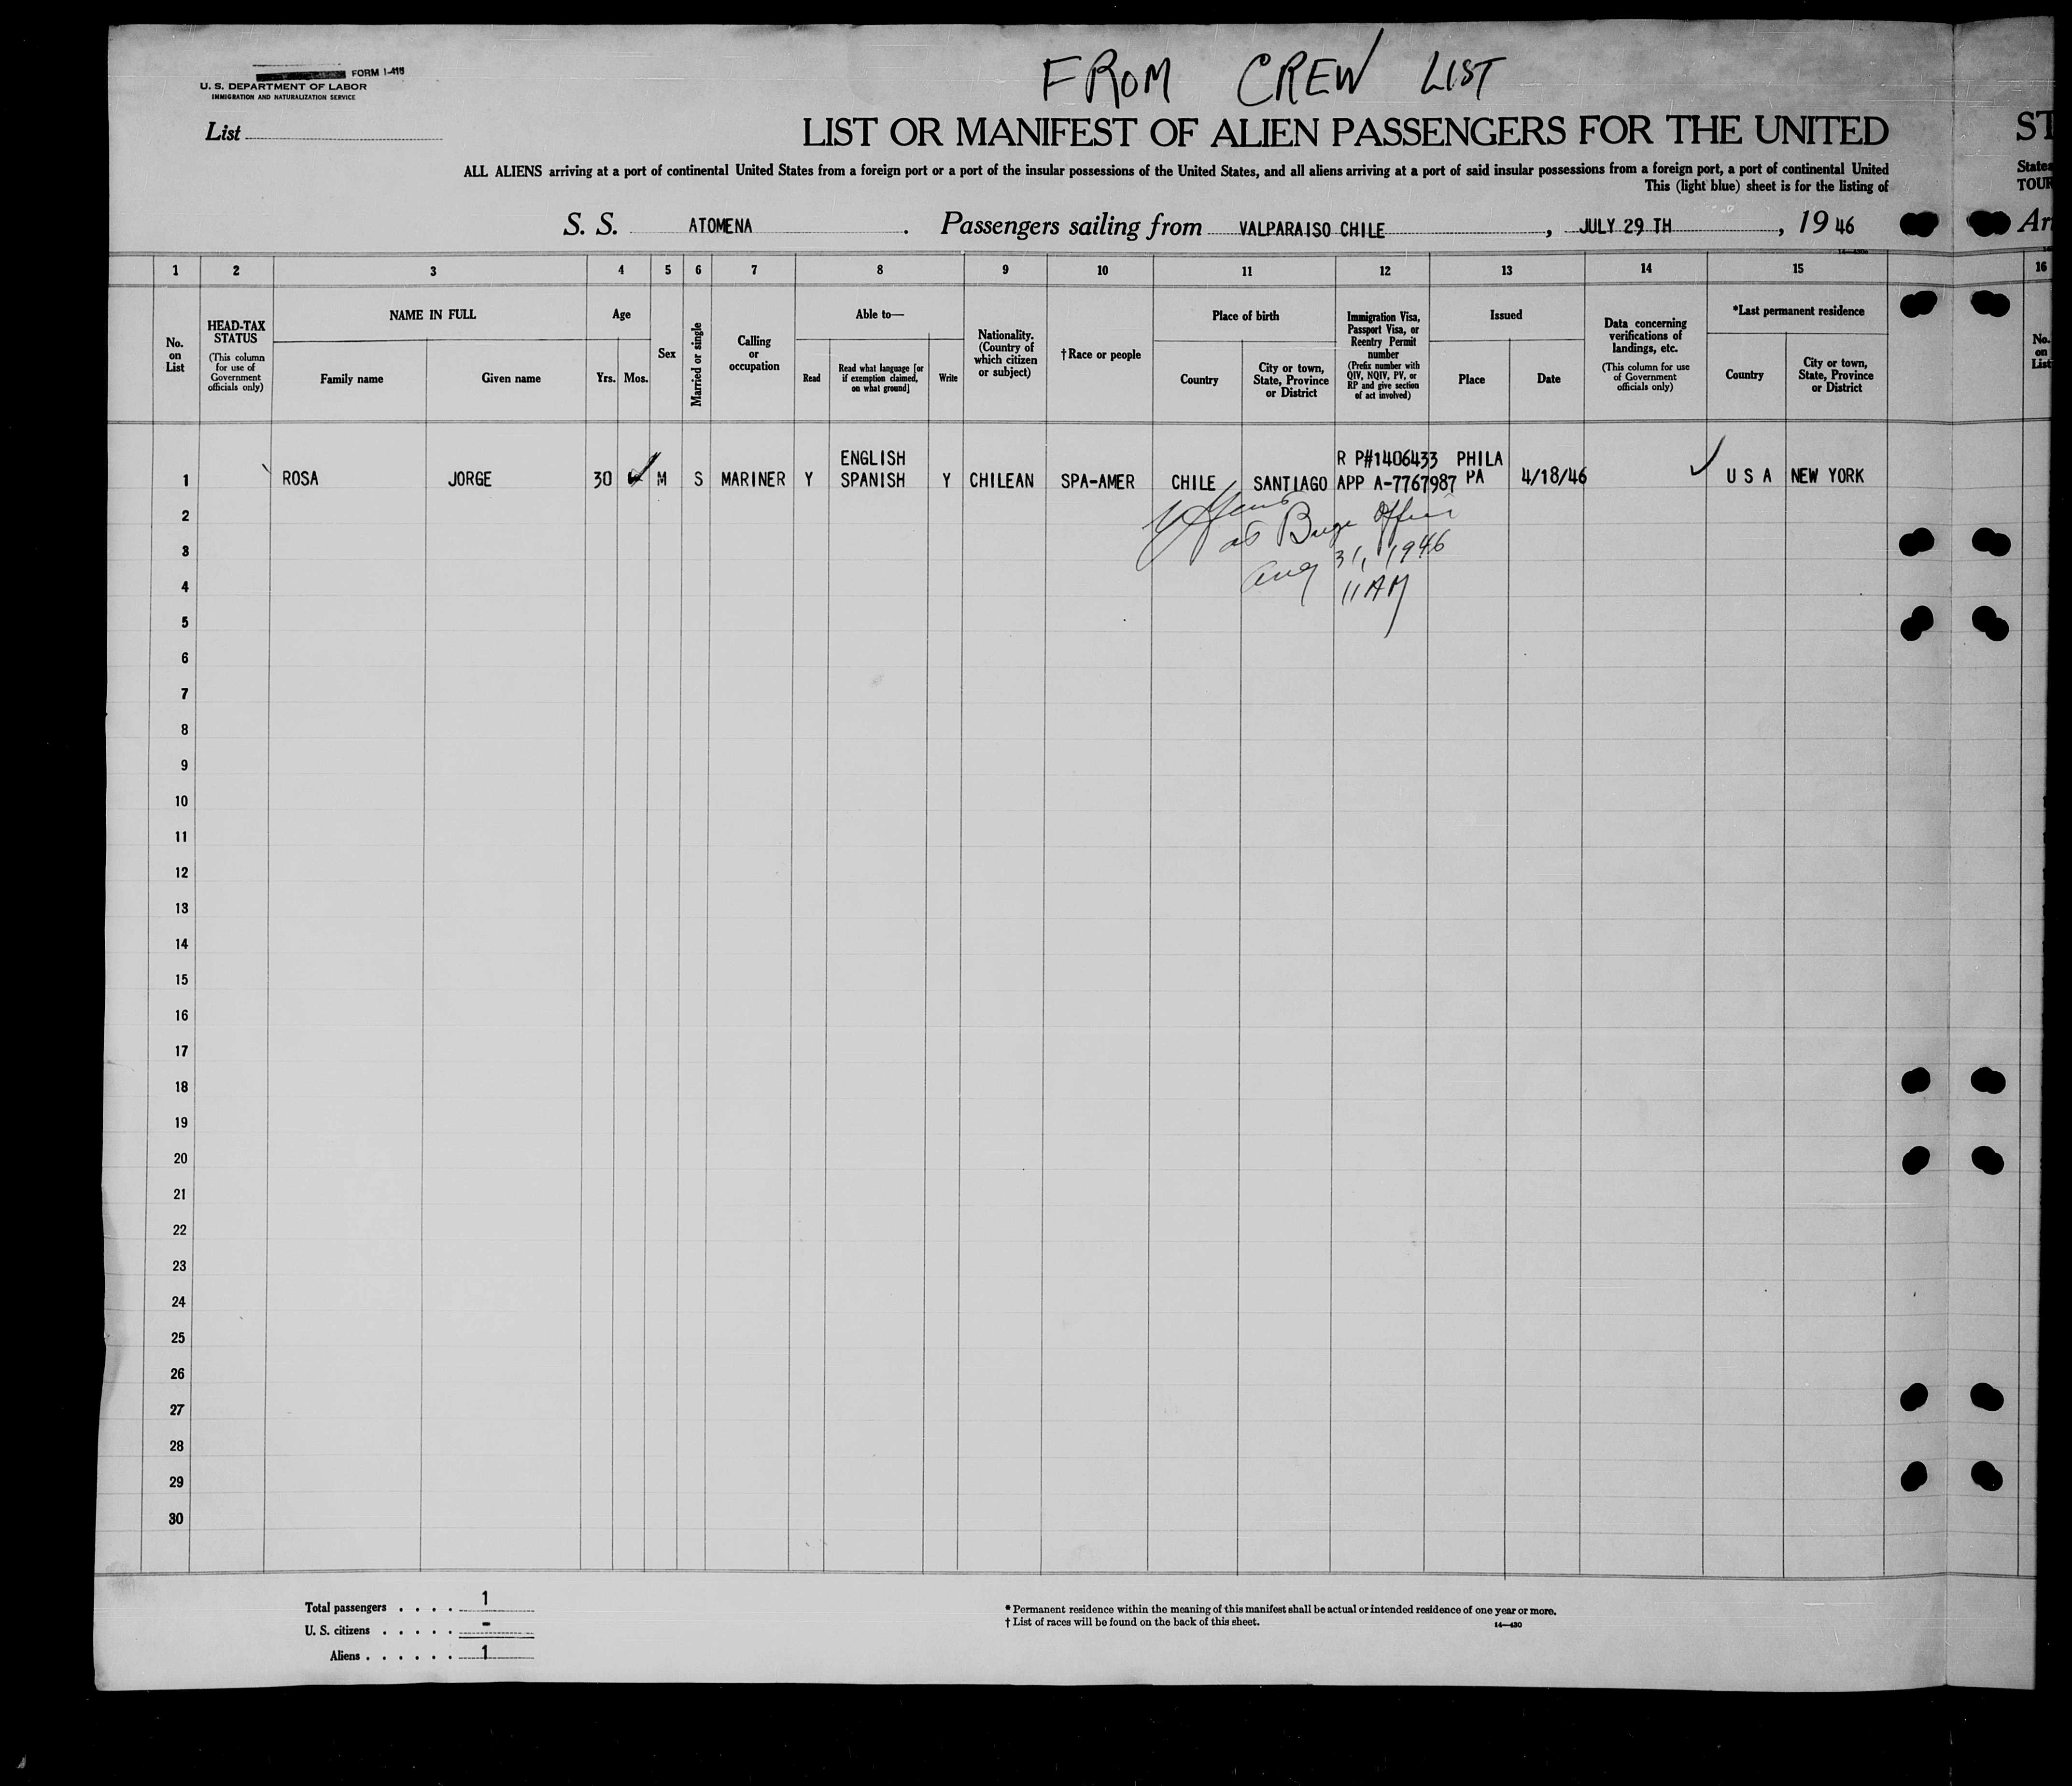 FROM CREW LIST
FORM I-415
U. S. DEPARTMENT OF LABOR
IMMIGRATION AND NATURALIZATION SERVICE
List
LIST OR MANIFEST OF ALIEN PASSENGERS FOR THE UNITED
ST
ALL ALIENS arriving at a port of continental United States from a foreign port or a port of the insular possessions of the United States, and all aliens arriving at a port of said insular possessions from a foreign port, a port of continental United
States
This (light blue) sheet is for the listing of
TOUR
S. S. ATOMENA . Passengers sailing from VALPARAISO CHILE , JULY 29 TH , 19 46
Arr
1 2 3 4 5 6 7 8 9 10 11 12 13 14 15 16
No. on List
HEAD-TAX STATUS
(This column for use of Government officials only)
NAME IN FULL
Family name
Given name
Age
Yrs.
Mos.
Sex
Married or single
Calling or occupation
Able to—
Read
Read what language [or if exemption claimed, on what ground]
Write
Nationality. (Country of which citizen or subject)
†Race or people
Place of birth
Country
City or town, State, Province or District
Immigration Visa, Passport Visa, or Reentry Permit number
(Prefix number with QIV, NQIV, PV, or RP and give section of act involved)
Issued
Place
Date
Data concerning verifications of landings, etc.
(This column for use of Government officials only)
*Last permanent residence
Country
City or town, State, Province or District
No. on List
ENGLISH R P#1406433 PHILA
1 ROSA JORGE 30 M S MARINER Y SPANISH Y CHILEAN SPA-AMER CHILE SANTIAGO APP A-7767987 PA 4/18/46 U S A NEW YORK
2
3
Aug 31, 1946
4
11AM
5
6
7
8
9
10
11
12
13
14
15
16
17
18
19
20
21
22
23
24
25
26
27
28
29
30
Total passengers . . . . 1
U. S. citizens . . . . . -
Aliens . . . . . . 1
* Permanent residence within the meaning of this manifest shall be actual or intended residence of one year or more.
† List of races will be found on the back of this sheet.